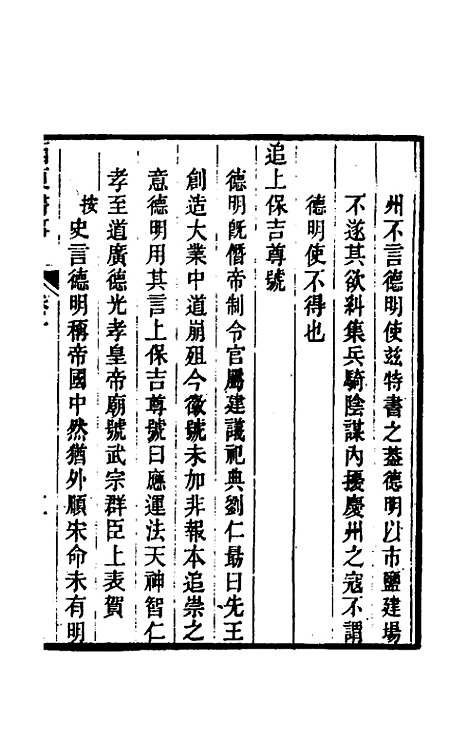 州不言德明使兹特書之葢德明以市鹽建場
不遂其欲糾集兵騎陰謀內擾慶州之寇不謂
德明使不得也
追上保吉尊號
德明旣僭帝制令官屬建議祀典劉仁勗曰先王
創造大業中道崩殂今徽號未加非報本追崇之
意德明用其言上保吉尊號曰應運法天神智仁
孝至道廣德光孝皇帝廟號武宗群臣上表賀
按史言德明稱帝國中然猶外順宋命未有明